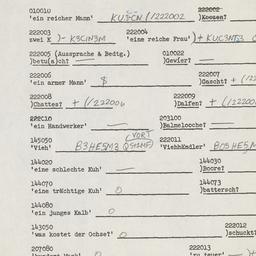 010010 222002
'ein reicher Mann' KUJ-CN (1222002 )Koozen?
222003 222004
zwei K )-K3CIN3M 'eine reiche Frau' )+ KUC3NT3
222005 (Aussprache & Bedtg.) 010022
)betu(a)ch? — )Gevier? —
222006 222007
'ein armer Mann' $ )Gascht? + (122
222008 222009
)Chattez? + (122200 )Dalfen? + (122200
222010 203100
'ein Handwerker' )Balmelooche?
145050 (VORT 222011
'Vieh' B3HE5M3 )Viehhändler' BO5HE5M
144020 144030
'eine schlechte Kuh' — )Bocre?
144070 144073
'eine trächtige Kuh' O )battersch?
144080
'ein junges Kalb' O
143050 222012
'was kostet der Ochse?' O )schuckt?
207080 222013